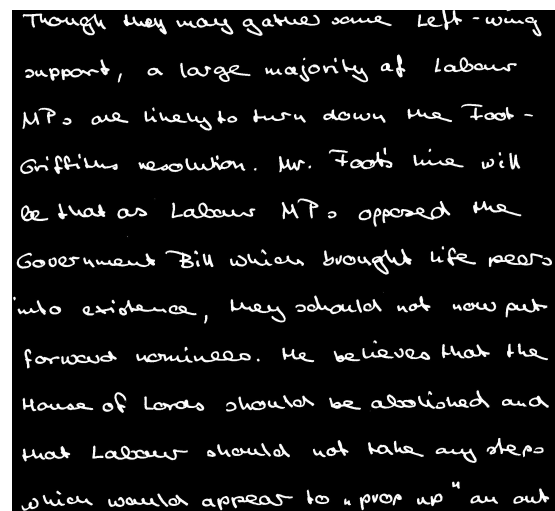 Though they may gather some Left-wing
support, a large majority of Labour
MPs are likely to turn down the Foot-
Griffiths resolution. Mr. Foot's line will
be that as Labour MPs opposed the
Government Bill which brought life peers
into existence, they should not now put
forward nominees. He believes that the
House of Lords should be abolished and
that Labour should not take any steps
which would appear to „prop up" an out